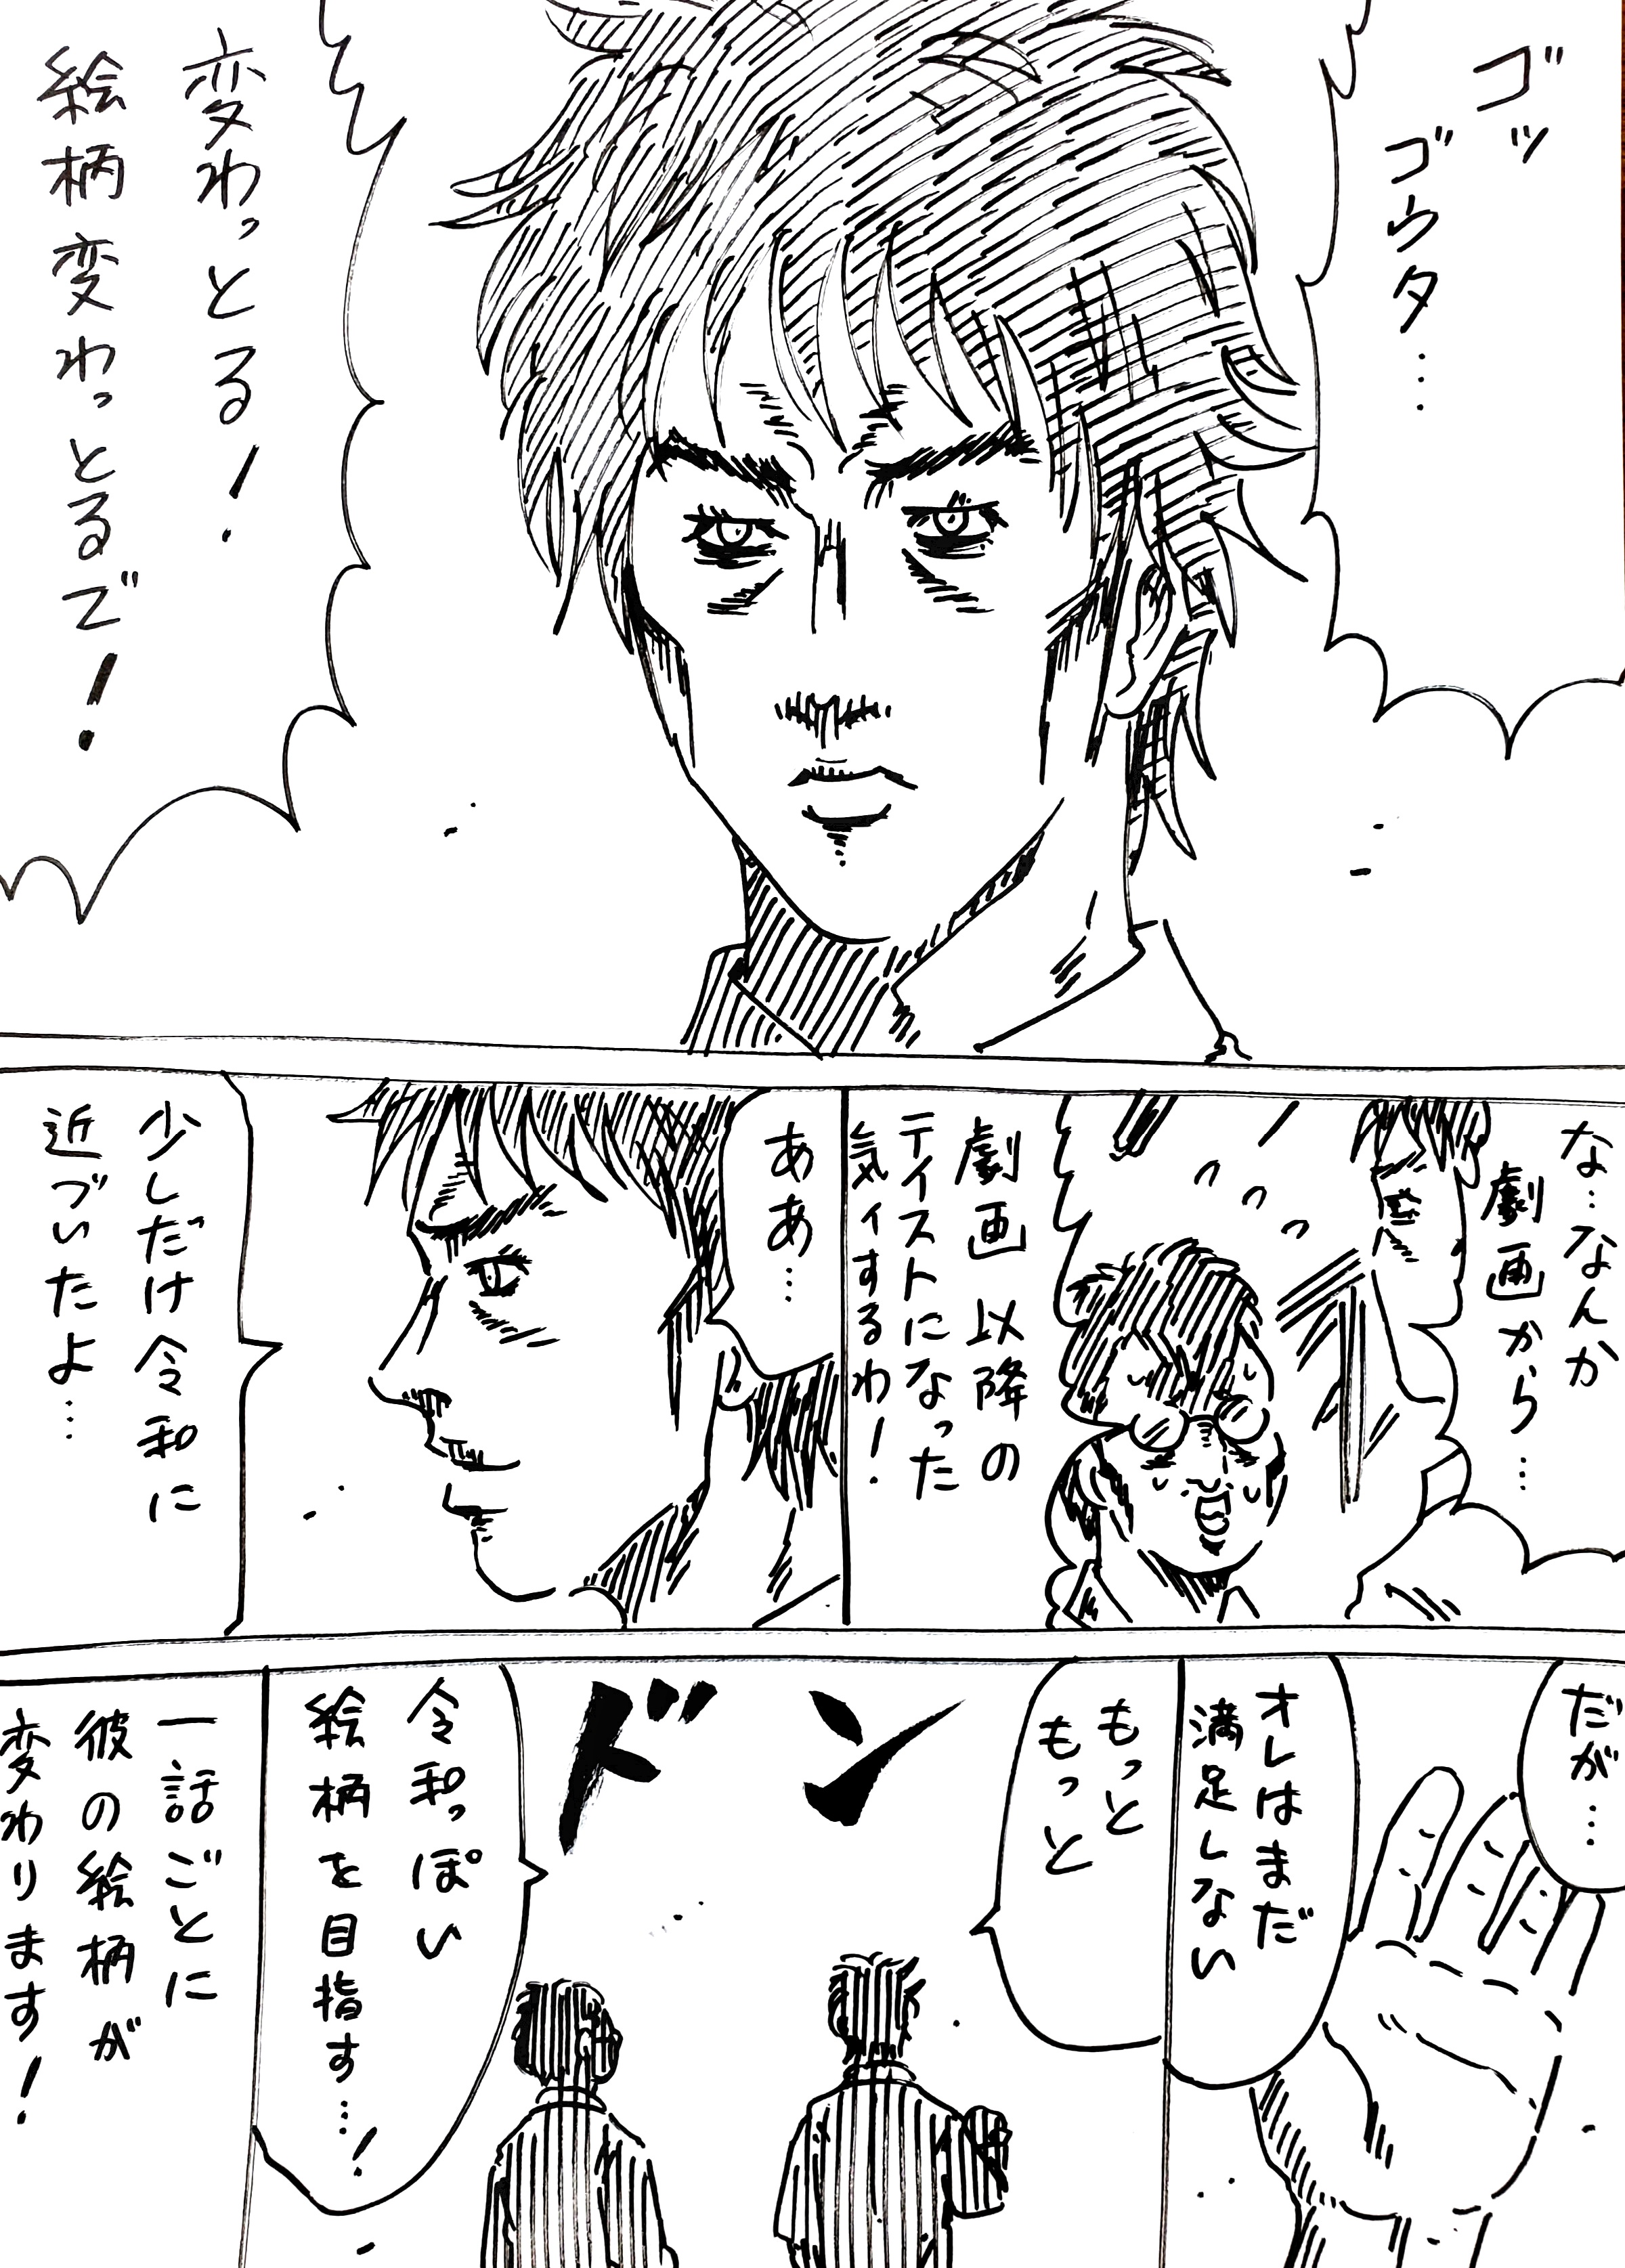 ゴッ
ゴウタ…
変わっとる！
絵柄変わっとるで！
な…なんか
劇画から…
劇画以降の
テイストになった
気ィするわ！
ああ…
少しだけ令和に
近づいたよ…
だが…
オレはまだ
満足しない
もっと
もっと
ドン
令和っぽい
絵柄を目指す…！
一話ごとに
彼の絵柄が
変わります！